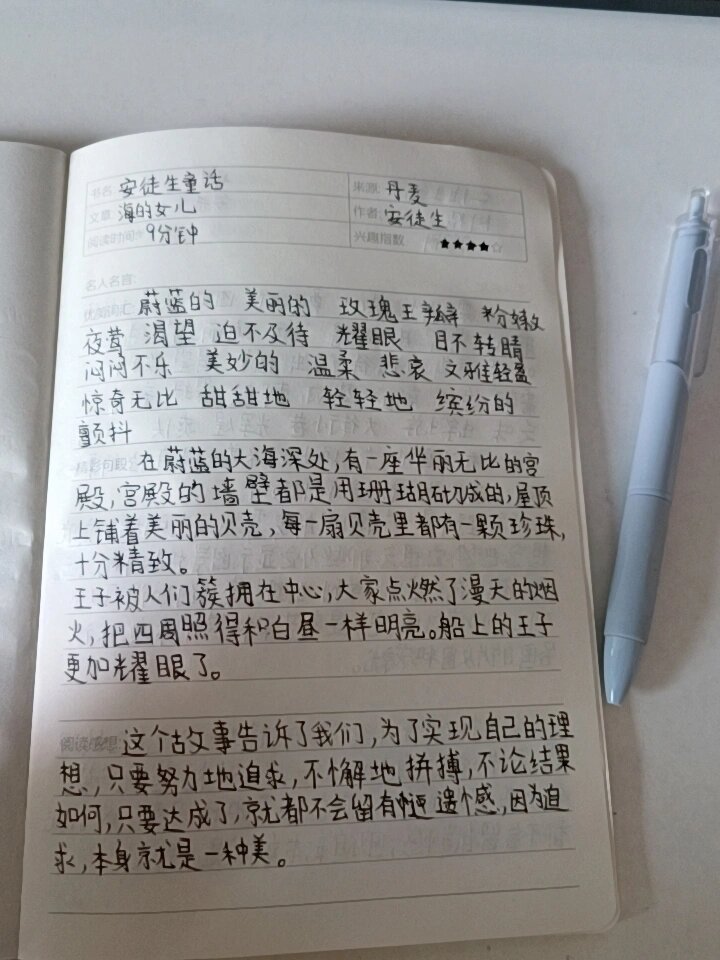 书名: 安徒生童话 来源: 丹麦
文章: 海的女儿 作者: 安徒生
阅读时间: 9分钟 兴趣指数 ★★★★☆
名人名言:
优美词汇: 蔚蓝的 美丽的 玫瑰王瓣 粉嫩
夜莺 渴望 迫不及待 耀眼 目不转睛
闷闷不乐 美妙的 温柔 悲哀 文雅轻盈
惊奇无比 甜甜地 轻轻地 缤纷的
颤抖
精彩句段: 在蔚蓝的大海深处,有一座华丽无比的宫
殿,宫殿的墙壁都是用珊瑚砌成的,屋顶
上铺着美丽的贝壳,每一扇贝壳里都有一颗珍珠,
十分精致。
王子被人们簇拥在中心,大家点燃了漫天的烟
火,把四周照得和白昼一样明亮。船上的王子
更加耀眼了。
阅读感想: 这个故事告诉了我们,为了实现自己的理
想,只要努力地追求,不懈地拼搏,不论结果
如何,只要达成了,就都不会留有遗憾感,因为追
求,本身就是一种美。